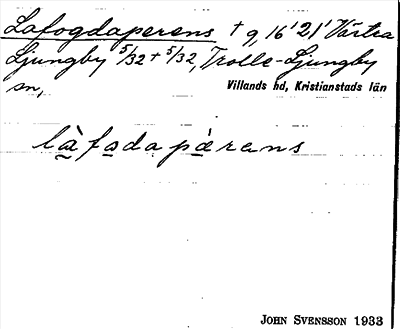 Lafogdaperens + g, 16' 21' Västra
Ljungby 5/32 + 5/32, Trolle-Ljungby
sn,
Villands hd, Kristianstads län
làfodapèrens
JOHN SVENSSON 1933